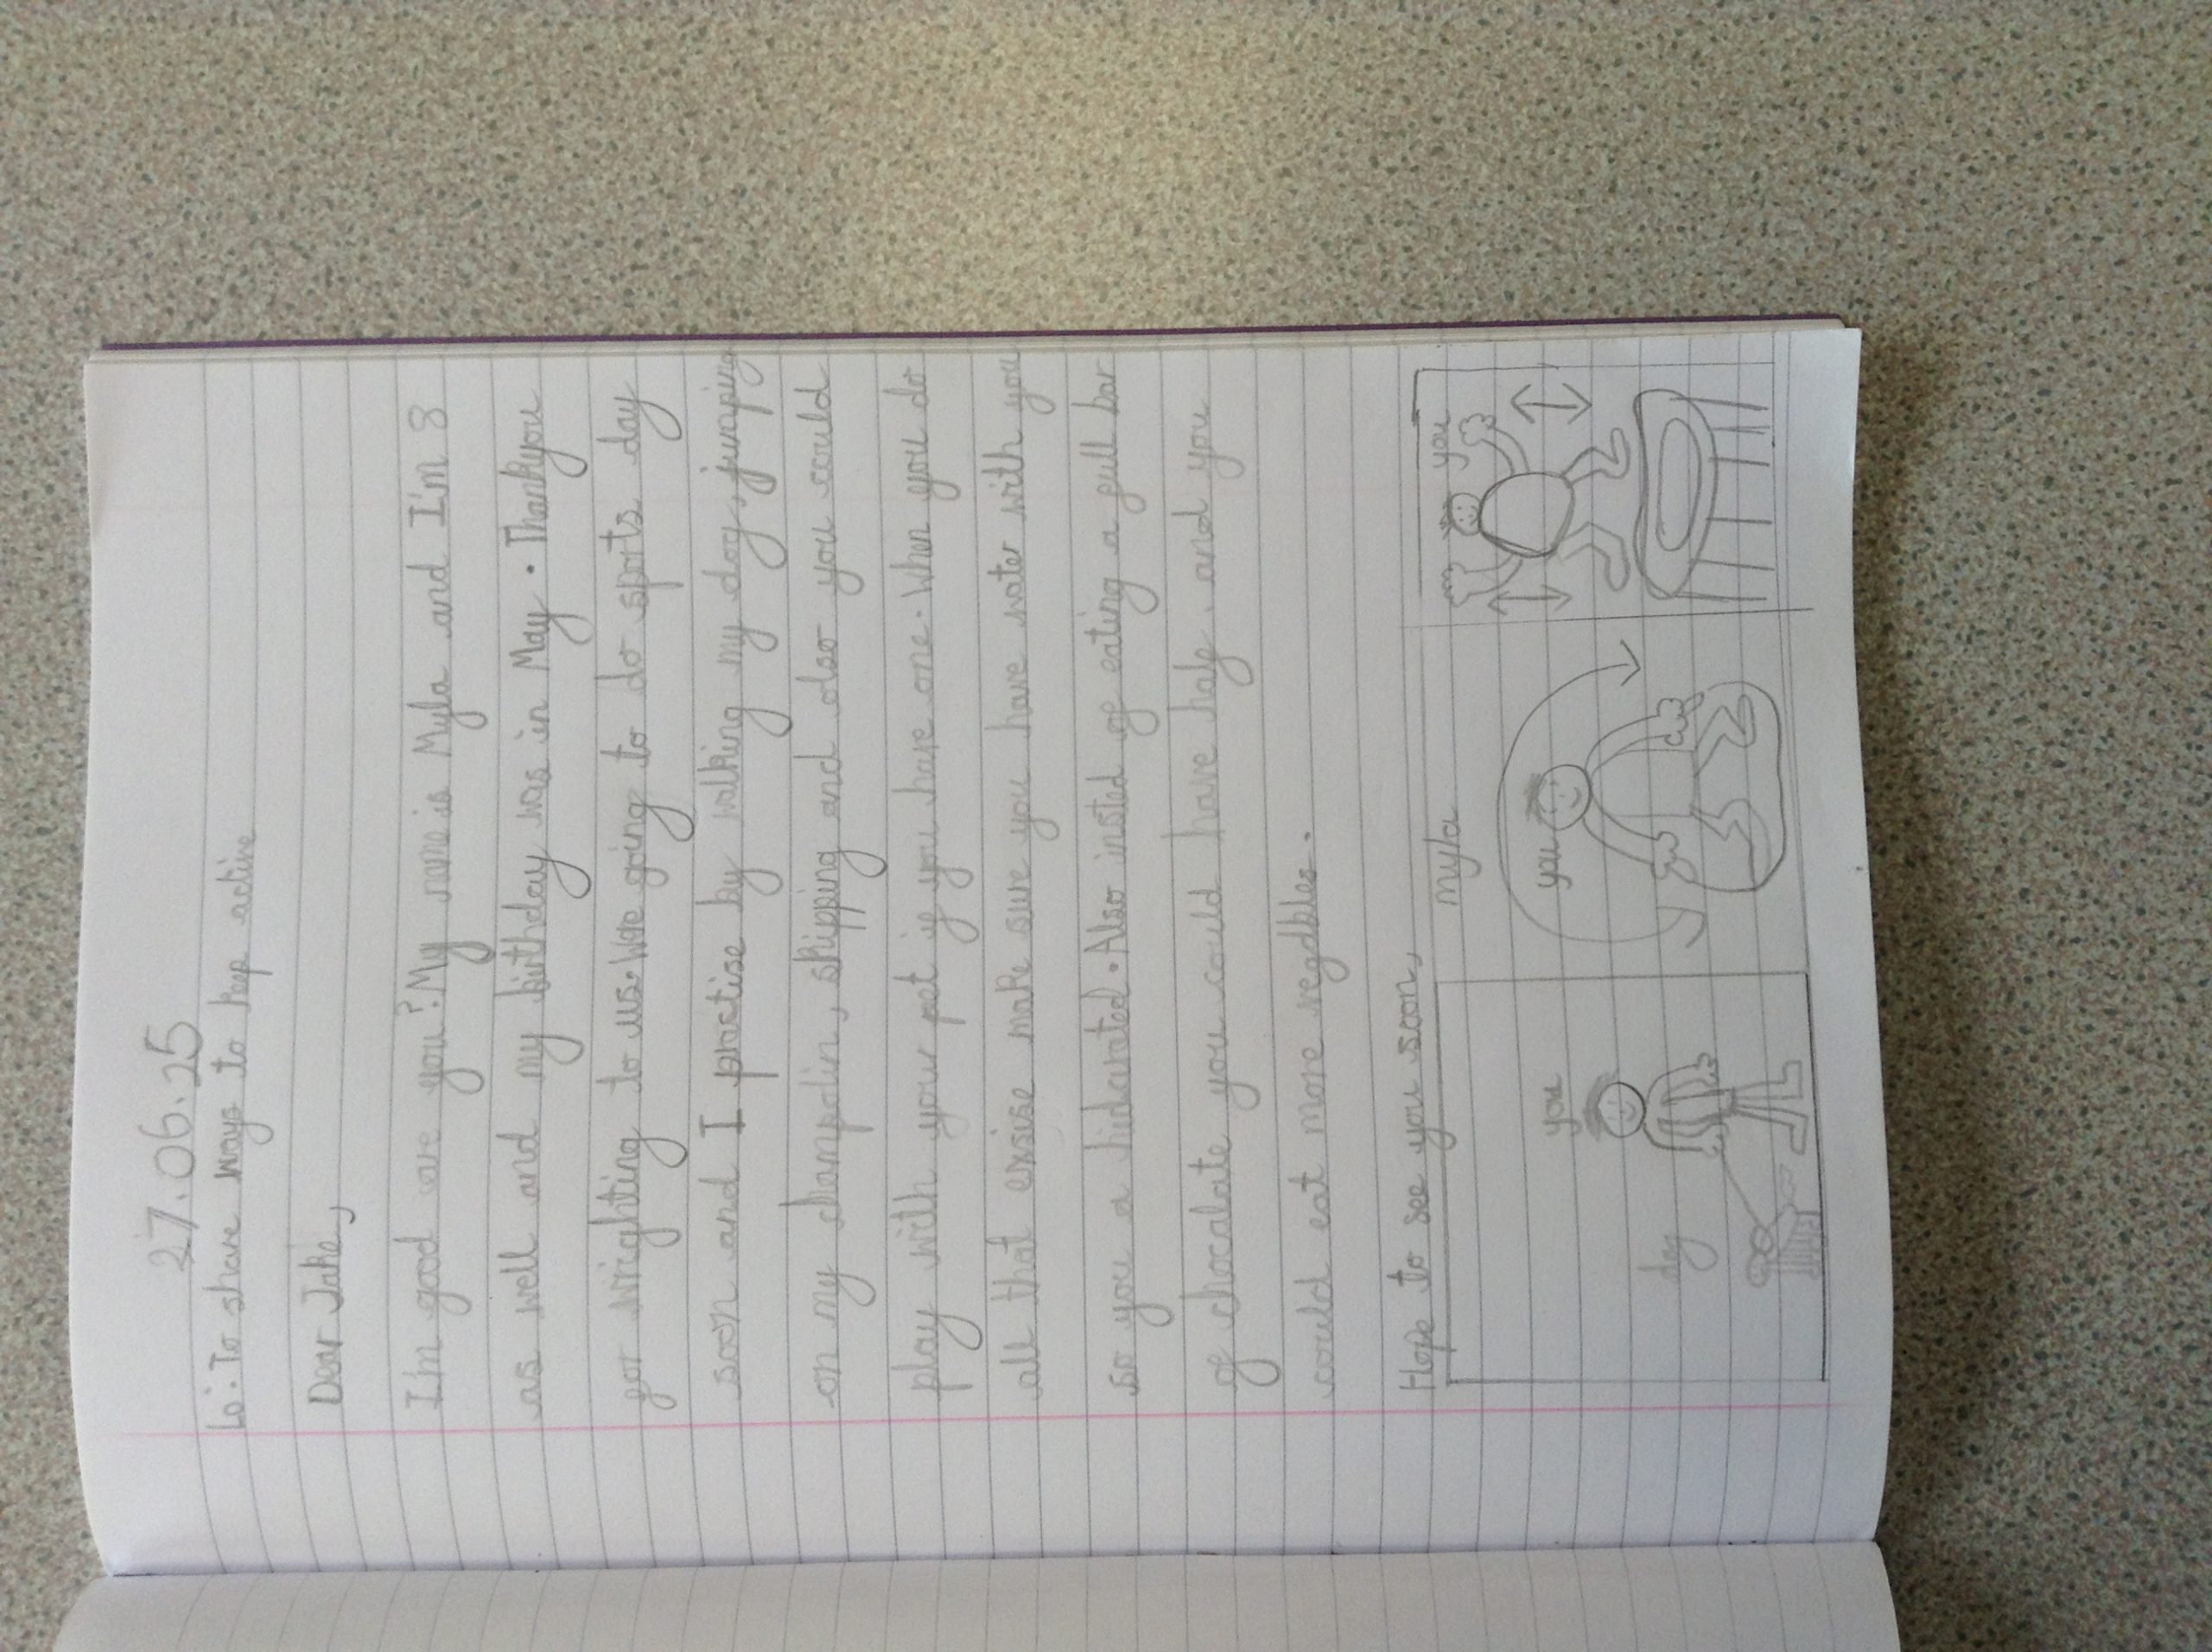 27.06.25
Lo: To share ways to keep active
Dear Jake,
I'm good are you? My name is Myla and I'm 8
as well and my birthday was in May. Thankyou
for wrighting to us. Were going to do sports day
soon and I practise by walking my dog, jumping
on my champolin, skipping and also you could
play with your pet if you have one. When you do
all that exsise make sure you have water with you
so you a hidearated. Also insted of eating a full bar
of chocalate you could have half. and you
could eat more vegdbles.
Hope to see you soon,
myla
you
dog
you
you